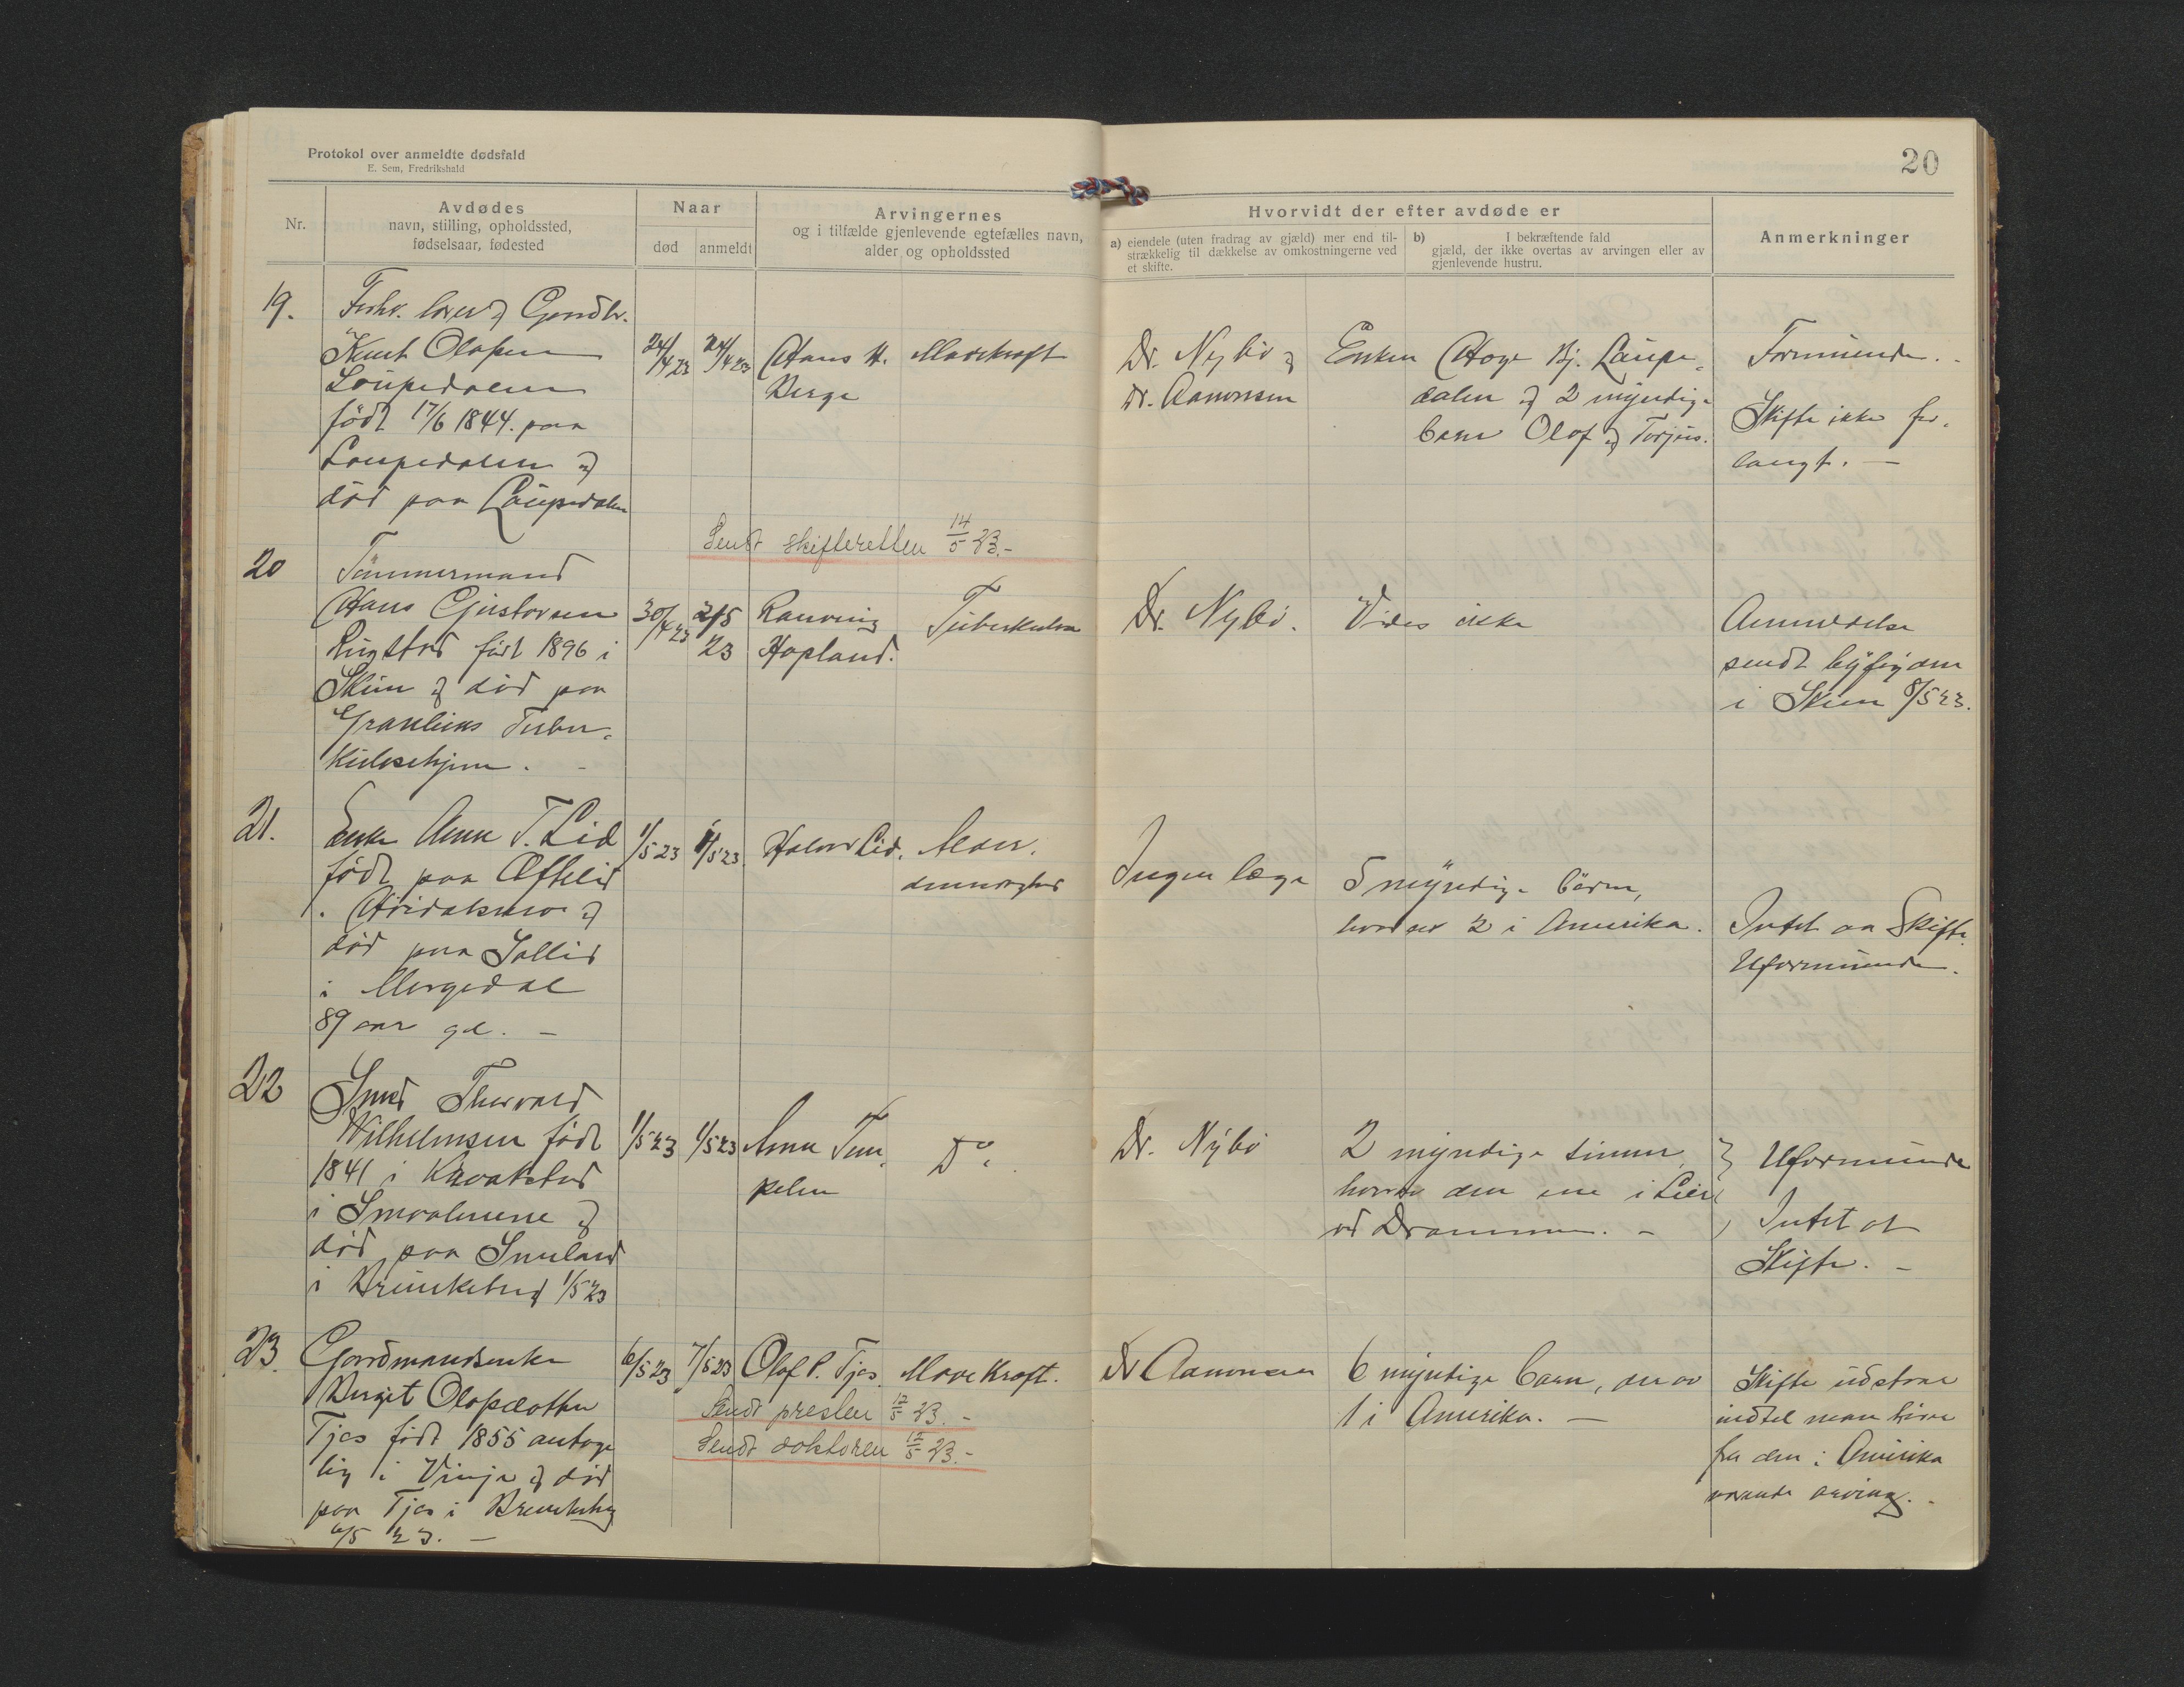 Protokol over anmeldte dødsfald
E. Sem, Fredrikshald
20
Nr.
Avdødes
navn, stilling, opholdssted,
fødselsaar, fødested
Naar
død
anmeldt
Arvingernes
og i tilfælde gjenlevende egtefælles navn,
alder og opholdssted
Hvorvidt der efter avdøde er
a) eiendele (uten fradrag av gjæld) mer end til-
strækkelig til dækkelse av omkostningerne ved
et skifte.
b) I bekræftende fald
gjæld, der ikke overtas av arvingen eller av
gjenlevende hustru.
Anmerkninger
19.
Forhv.
Knut Olafsen
Loupedalen
født 17/6 1844. paa
Loupedalen og
død paa Loupedalen
24/4 23
24/4 23
Hans H.
Berge
Mavekraft
Dr. Nybø og
Dr. Aanonsen
Enken Hoge Kj. Laupe-
dalen og 2 myndige
barn Olof og Torjus.
Formuende.
Skifte ikke for-
langt. —
Sendt skifteretten 14/5 23.-
20
Tömmermand
Hans Gustavsen
Rugstad født 1896 i
Skien og död paa
Granliens Tuber-
kulosehjem. -
30/4 23
2/5 23
Ranveig
Hopland.
Tuberkulose
Dr. Nybö.
Vides ikke
Anmeldelse
sendt byfogden
i Skien 8/5 23.
21.
Enke Anne T. Lid
født paa Øftelid
i Höidalsmo og
död paa Sollid
i Morgedal
89 aar gl. —
1/5 23
1/5 23
Halvor Lid.
Alder-
domssvaghed
Ingen læge
5 myndige börn,
hvorav 2 i Amerika.
Intet aa Skifte.
Uformuende.
22
Smed Thorvald
Wilhelmsen födt
1841 i
i Smaalenene og
död paa
i Brunkeberg 1/5 23
1/5 23
1/5 23
Anne Tem-
pelen
Do.
Dr. Nybö
2 myndige sönner,
hvorav den ene i Lier
ved Drammen. -
Uformuende
Intet at
Skifte. -
23.
Gaardmandsenke
Berget Olafsdotter
Tjos födt 1855 antage-
lig i Vinje og död
paa Tjos i Brunkeberg
6/5 23. —
6/5 23
7/5 23
Olaf P. Tjos.
Mavekraft.
Sendt presten 12/5 23.-
Sendt doktoren 12/5 23.-
Dr Aanonsen
6 myndige barn, derav
1 i Amerika. —
Skifte udstaar
indtil man hörer
fra den i Amerika
værende arving. -